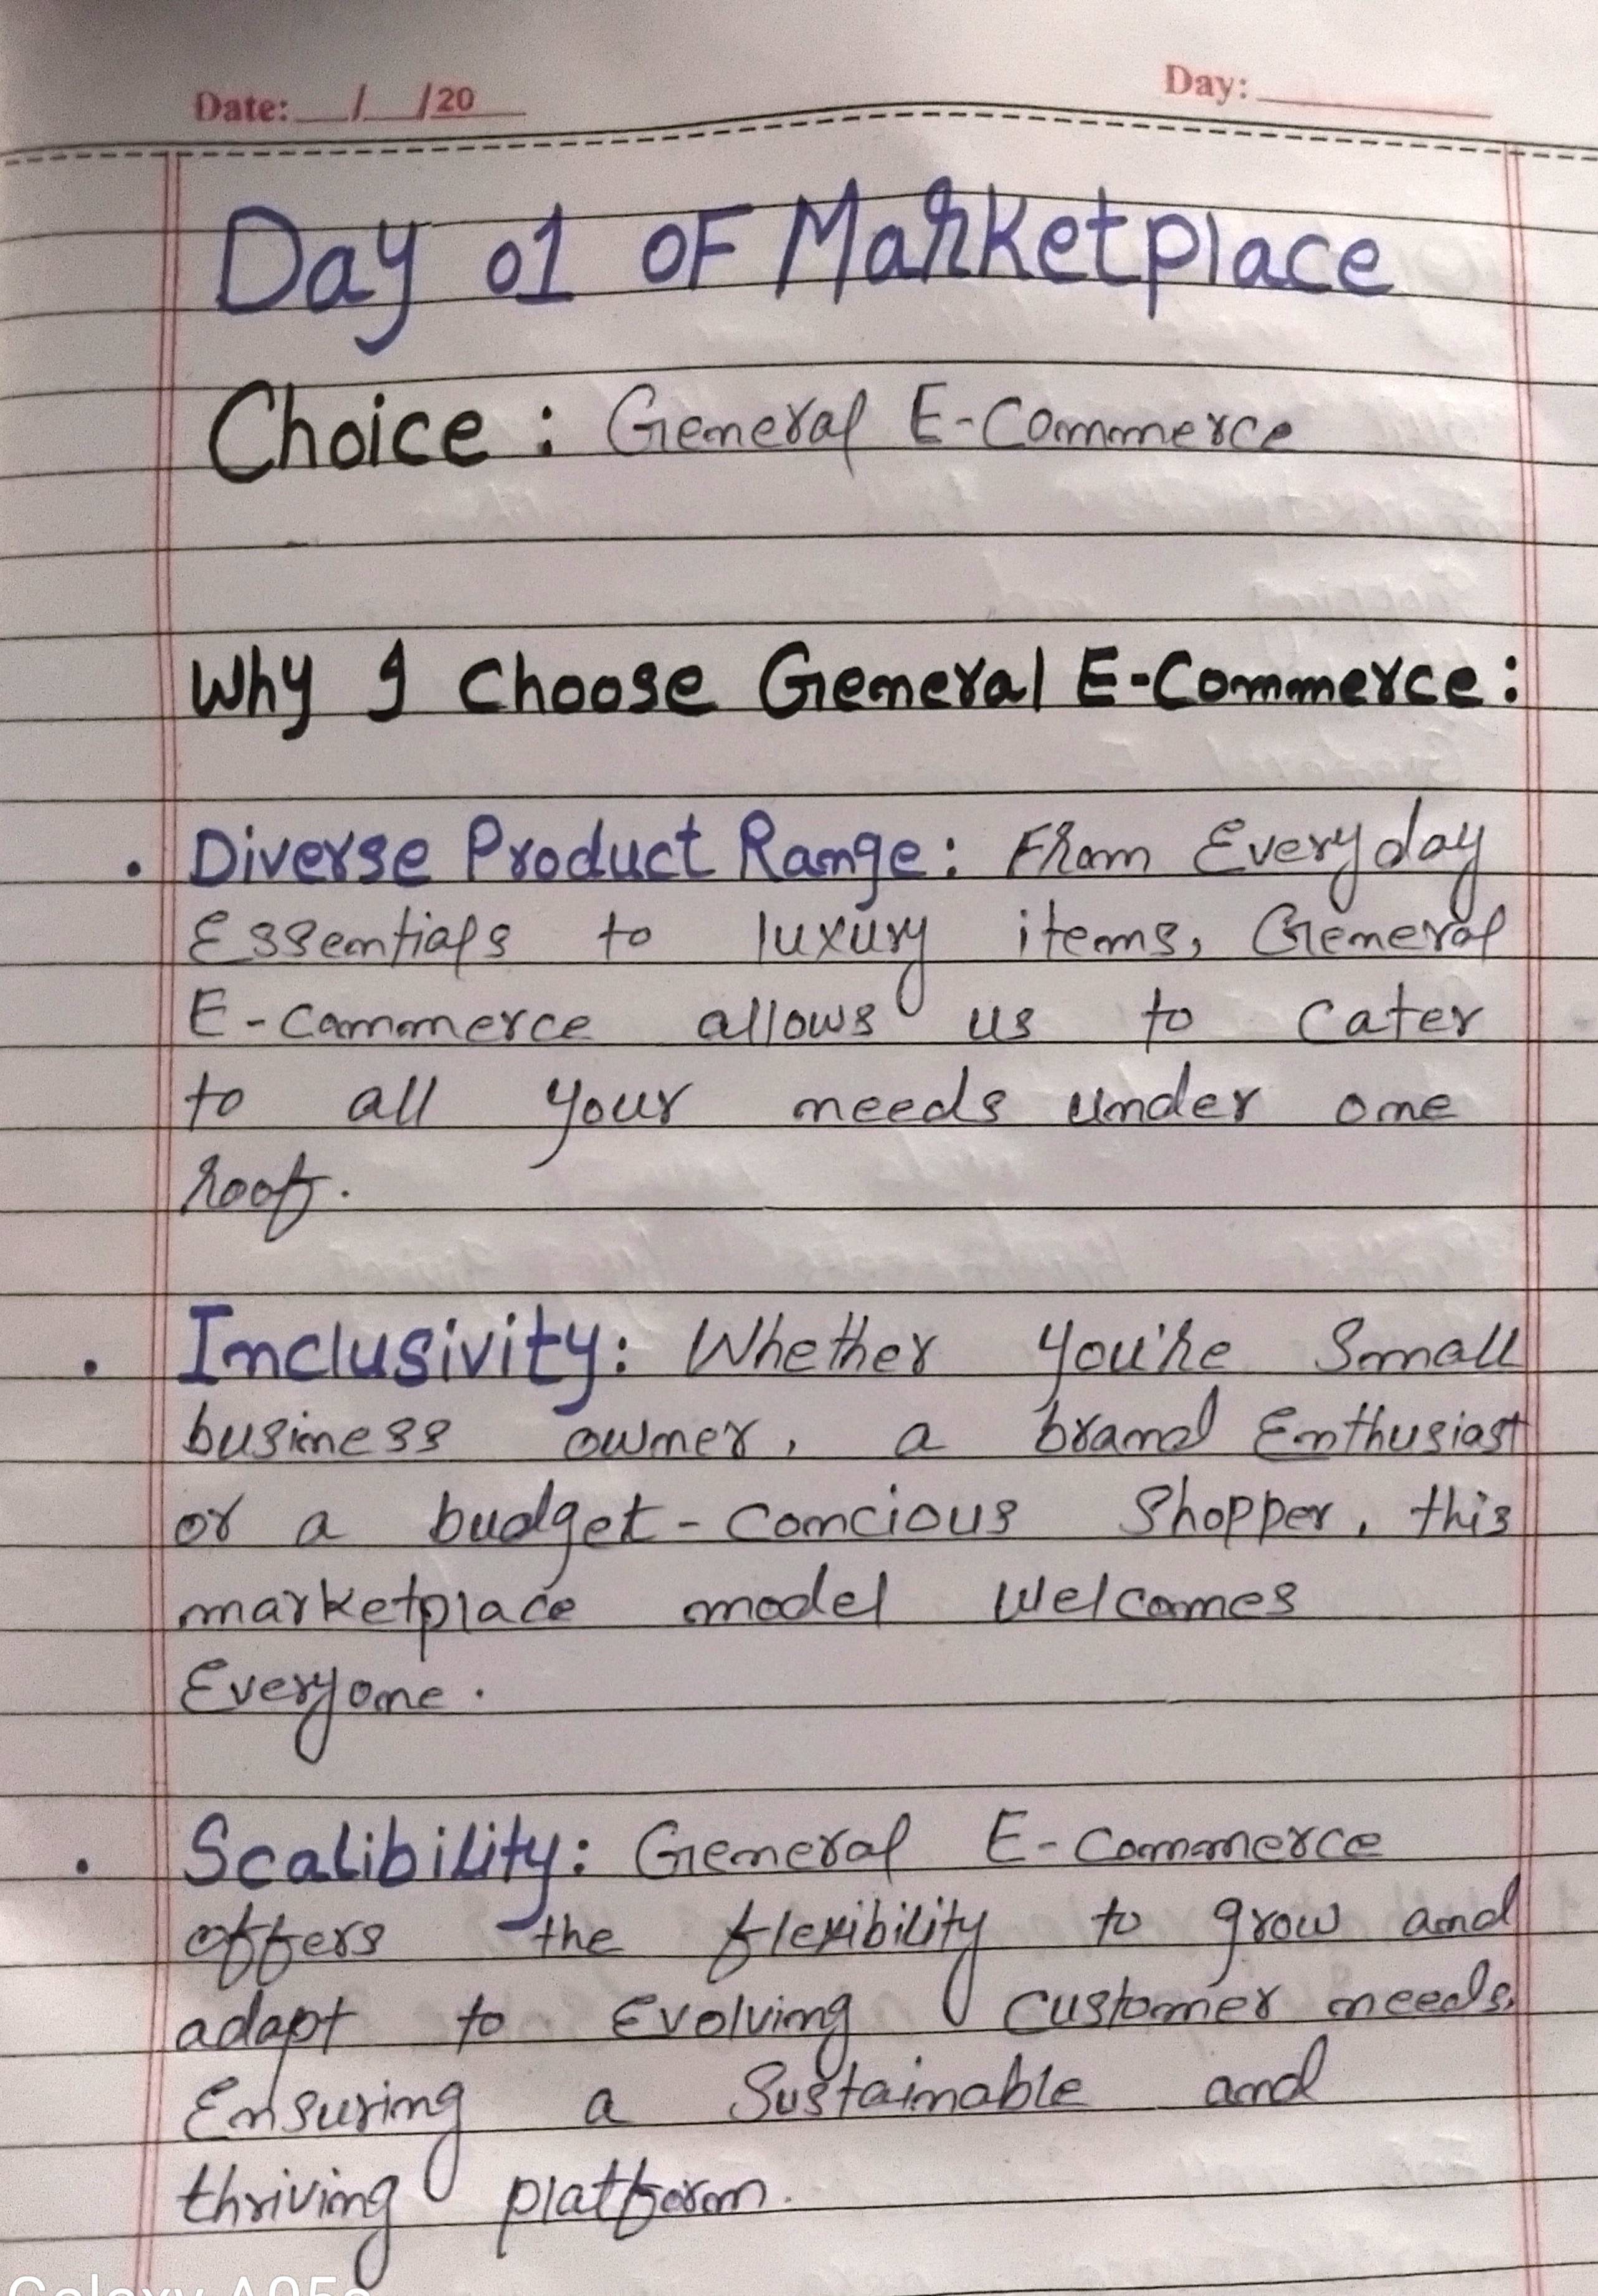 Date: __/__/20__ Day: ________
Day 01 OF Marketplace
Choice : General E-Commerce
Why I Choose General E-Commerce:
. Diverse Product Range: From Everyday
Essentials to luxury items, General
E-Commerce allows us to Cater
to all your needs under one
roof.
. Inclusivity: Whether you're Small
business owner, a brand Enthusiast
or a budget-Concious Shopper, this
marketplace model Welcomes
Everyone.
. Scalibility: General E-Commerce
offers the flexibility to grow and
adapt to Evolving Customer needs,
Ensuring a Sustainable and
thriving platform.